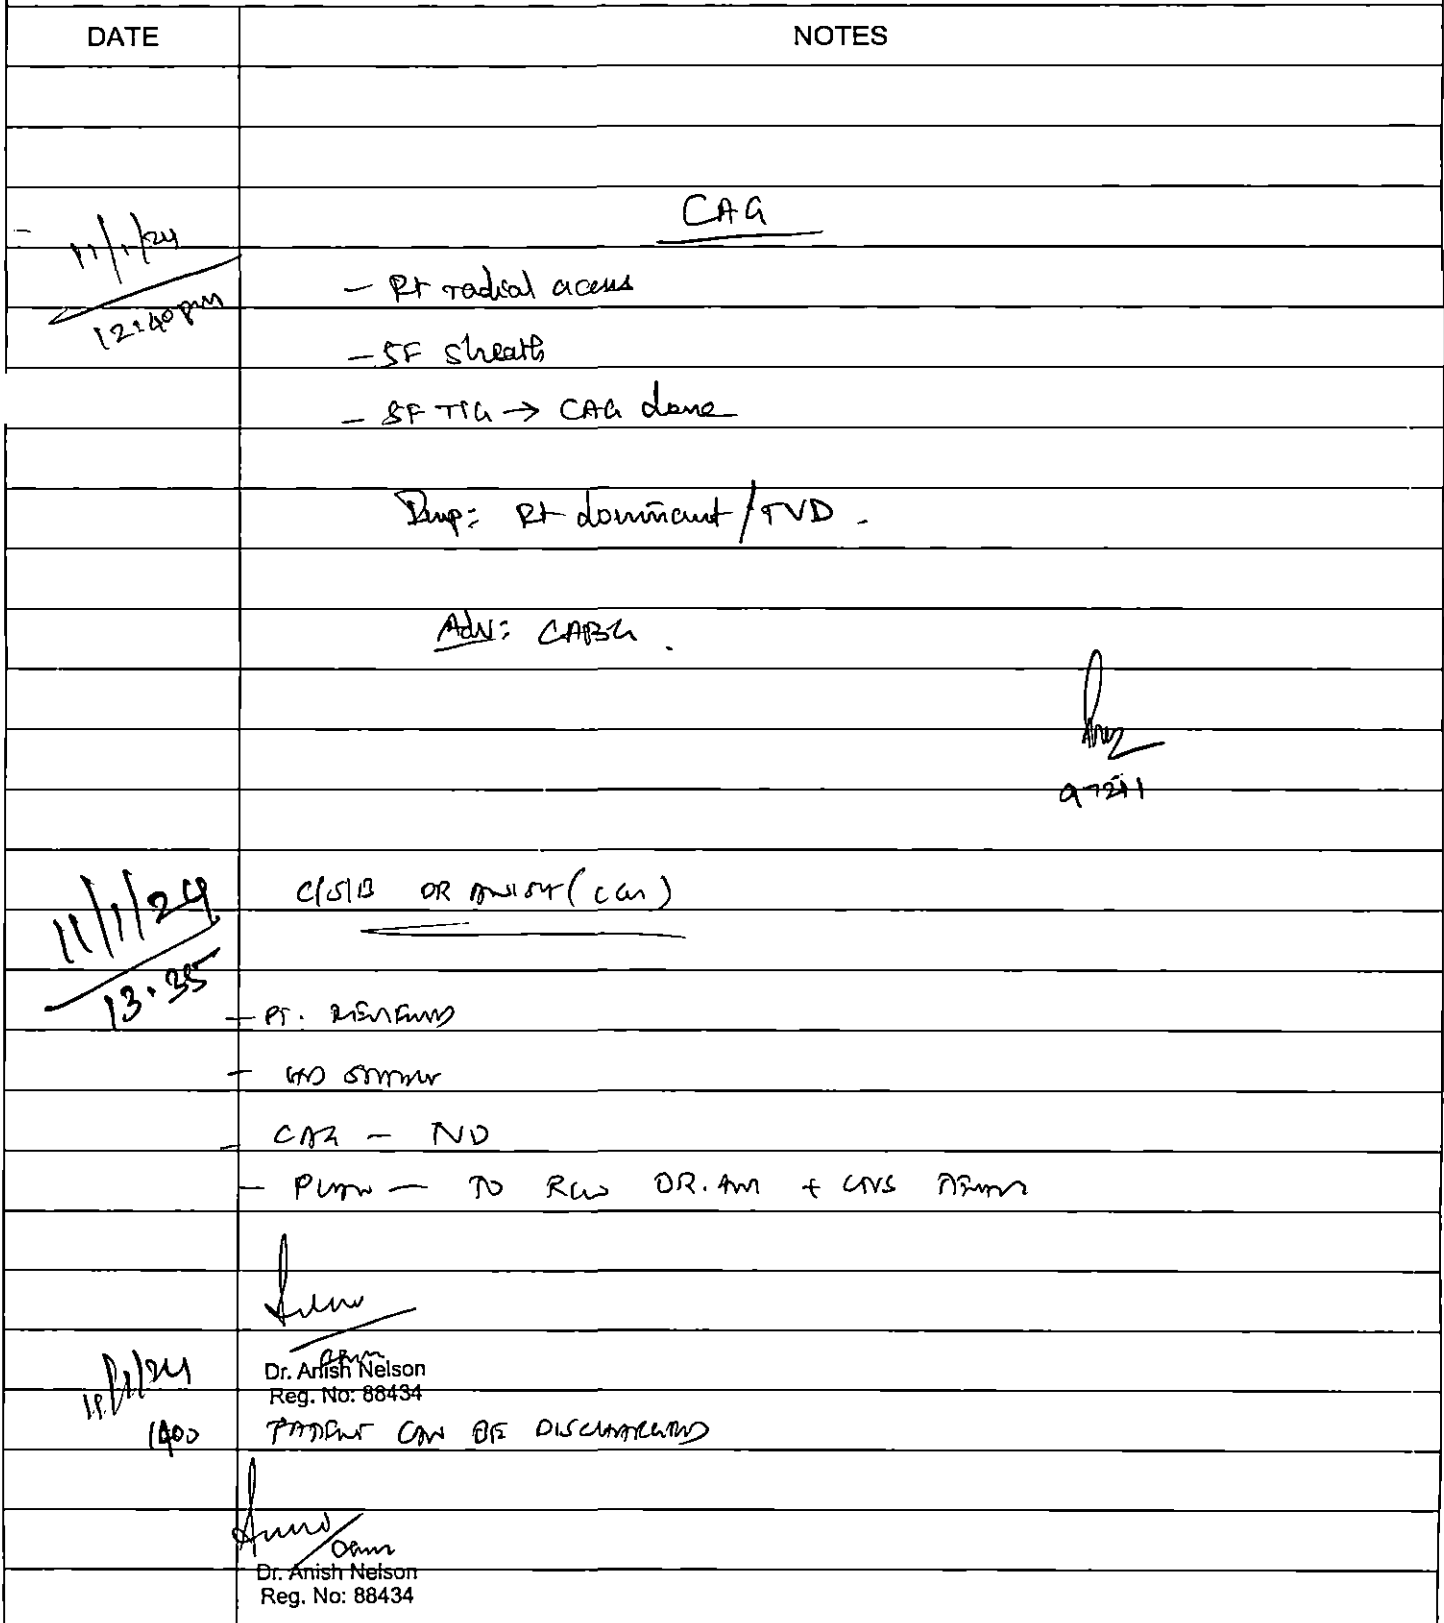 DATE NOTES
CAG
11/1/24
12:40 pm
- Rt radial acess
- 5F sheath
- 5F TIG → CAG done
Imp: Rt dominant / TVD.
Adv: CABG.
97211
11/1/24
13.35
C/S/B DR ANISH (
- PT. REVIEWED
- CAG - TVD
- PLAN - TO R/W DR. + CTVS
Dr. Anish Nelson
Reg. No: 88434
11/1/24
1400
PATIENT CAN BE DISCHARGED
Dr. Anish Nelson
Reg. No: 88434